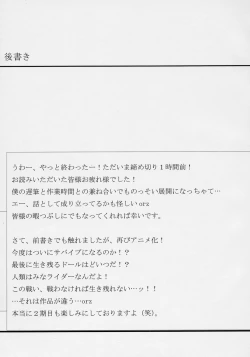 後書き
うわー、やっと終わったー！ただいま締め切り１時間前！
お読みいただいた皆様お疲れ様でした！
僕の遅筆と作業時間との兼ね合いでものっそい展開になっちゃて…
エー、話として成り立ってるかも怪しいorz
皆様の暇つぶしにでもなってくれれば幸いです。
さて、前書きでも触れましたが、再びアニメ化！
今度はついにサバイブになるのか！？
最後に生き残るドールはどいつだ！？
人類はみなライダーなんだよ！
この戦い、戦わなければ生き残れない…ッ！！
…それは作品が違う…orz
本当に２期目も楽しみにしておりますよ（笑）。